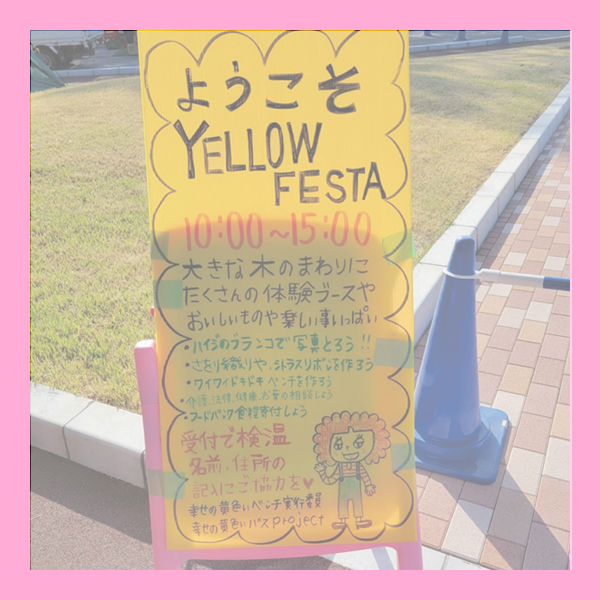 ようこそ
YELLOW
FESTA
10:00~15:00
大きな木のまわりに
たくさんの体験ブースや
おいしいものや楽しい事いっぱい
・ハイジのブランコで写真とろう!!
・さをり織りや、シトラスリボンを作ろう
・ワイワイドキドキ ベンチを作ろう
・介護、法律、健康、お薬の相談しよう
・フードバンク食糧寄付しよう
受付で検温
名前、住所の
記入にご協力を♥
幸せの黄色いベンチ実行委員
幸せの黄色いバスproject